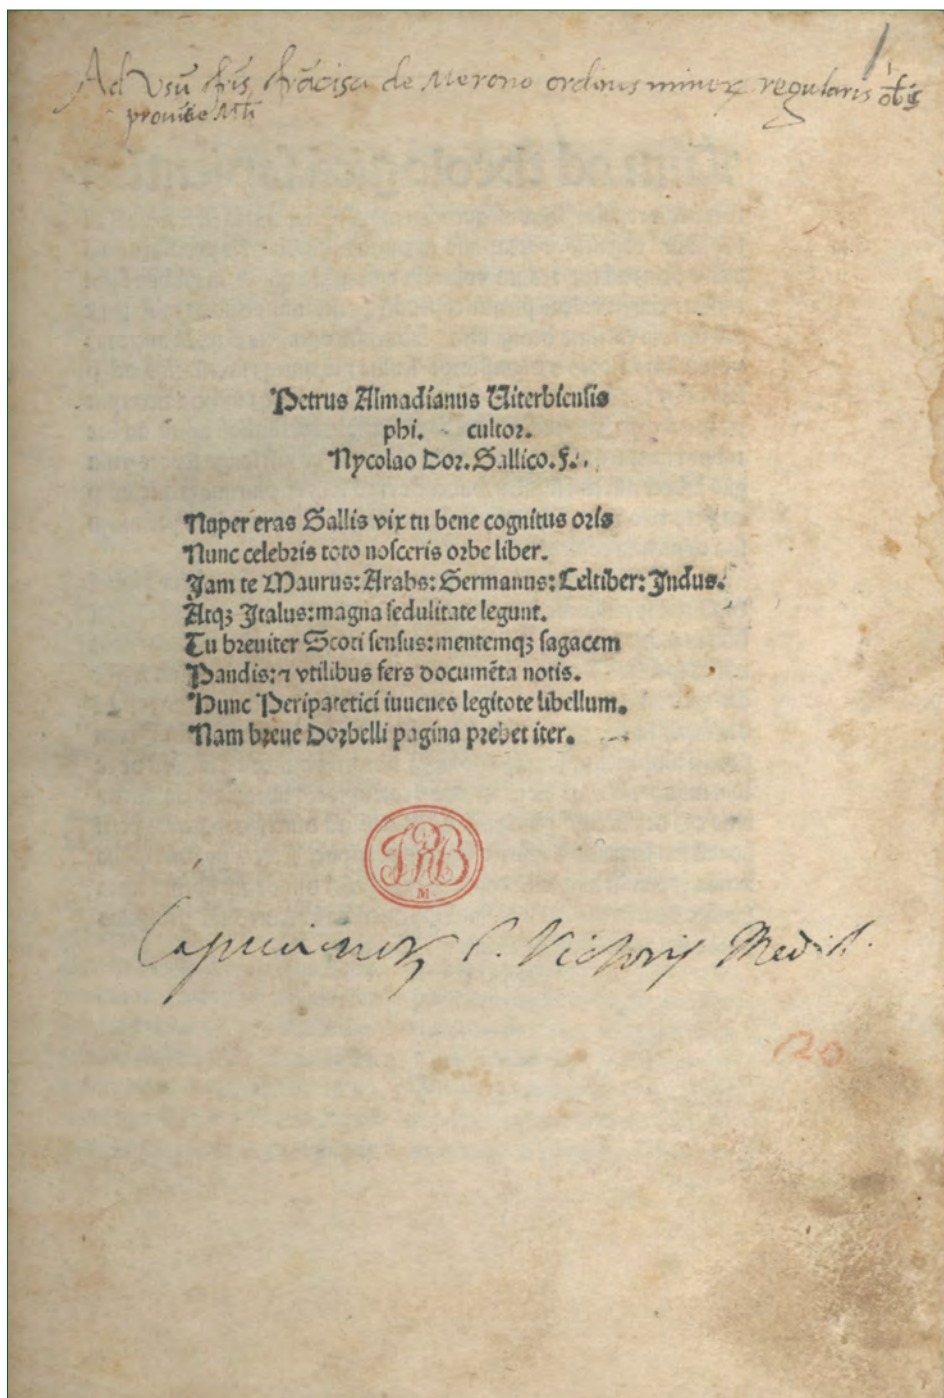 Ad Usū fr̄is frācisci de Merono ordinis minoꝝ regularis obẜ
prouīcie Mlī
Petrus Almadianus Uiterbiensis
phi. cultor.
Nycolao Dor. Gallico. F.
Nuper eras Gallis vix tu bene cognitus oris
Nunc celebris toto nosceris orbe liber.
Jam te Maurus: Arabs: Germanus: Celtiber: Jndus.
Atqꝫ Jtalus: magna sedulitate legunt.
Tu breuiter Scoti sensus: mentemqꝫ sagacem
Pandis: ⁊ vtilibus fers documēta notis.
Hunc Peripatetici iuuenes legitote libellum.
Nam breue Dorbelli pagina prebet iter.
JRB
M.
Capucinoꝝ S. Victoris Mediol.
120